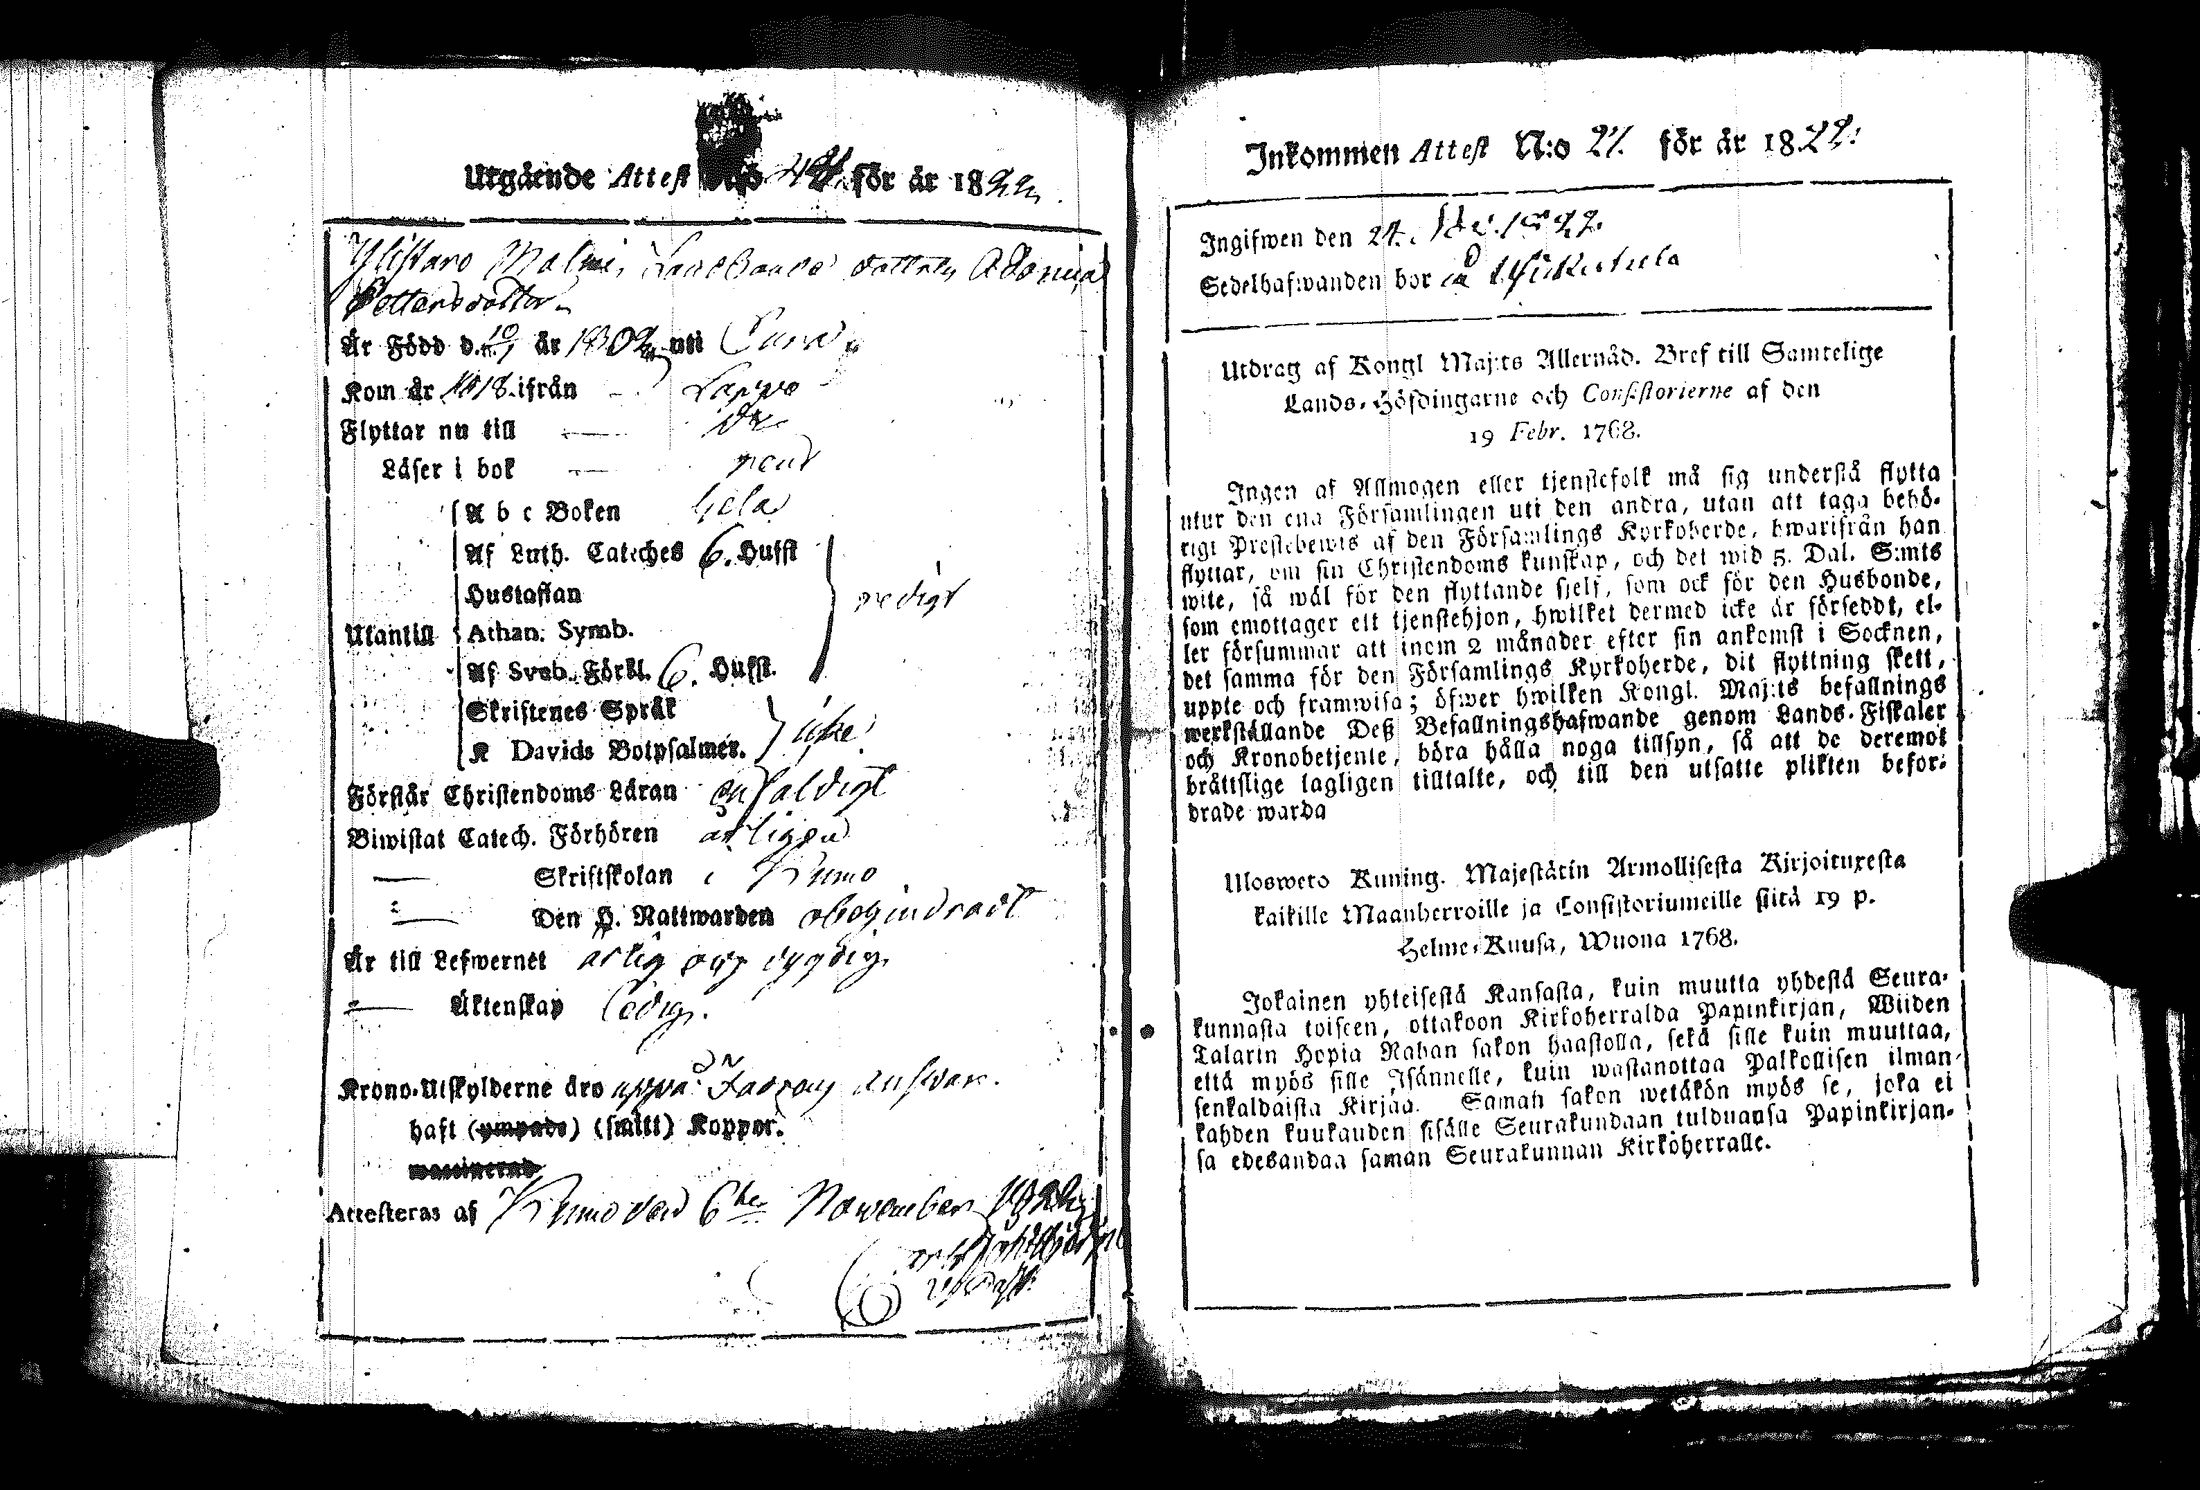 Utgående Attest N:o för år 1822.
Ylistaro Malmi, Landbonde dottren Adamia
Pettersdotter
Är Född d. 10/1 är 1802 uti
Kom år 1818. ifrån — Lappo
Flyttar nu till — dr
Läser i bok — rent
A b c Boken hela
Af Luth. Cateches 6. Hufst
Hustaflan redigt
Utantill Athan. Symb.
Af Sveb. Förkl. 6. Hufst.
Skriftenes Språk
K Davids Botpsalmer. icke
Förstår Christendoms Läran enfaldigt
Biwistat Catech. Förhören årligen
— Skriftskolan i Kumo
— Den H. Nattwarden obehindradt
Är till Lefwernet ärlig och dygdig
— Äktenskap ledig.
Krono-Utskylderne äro uppå Fadrens answar.
haft (ympade) (smitt) Koppor.
waccinerad
Attesteras af Kumo den 6te November 1822
Inkommen Attest N:o 27. för år 1822.
Ingifwen den 24. 1822.
Sedelhafwanden bor å
Utdrag af Kongl Maj:ts Allernåd. Bref till Samtelige
Lands-Höfdingarne och Consistorierne af den
19 Febr. 1768.
Ingen af Allmogen eller tjenstefolk må sig understå flytta
utur den ena Församlingen uti den andra, utan att taga behö-
rigt Prestebewis af den Församlings Kyrkoherde, hwarifrån han
flyttar, om sin Christendoms kunskap, och det wid 5. Dal. S:mts
wite, så wäl för den flyttande sjelf, som ock för den Husbonde,
som emottager ett tjenstehjon, hwilket dermed icke är försedt, el-
ler försummar att inom 2 månader efter sin ankomst i Socknen,
det samma för den Församlings Kyrkoherde, dit flyttning skett,
uppte och framwisa; öfwer hwilken Kongl. Maj:ts befallnings
werkställande Deß Befallningshafwande genom Lands-Fiskaler
och Kronobetjente, böra hålla noga tillsyn, så att de deremot
bråttslige lagligen tilltalte, och till den utsatte plikten befor-
drade warda
Ulosweto Kuning. Majestätin Armollisesta Kirjoituxesta
kaikille Maanherroille ja Consistoriumeille siitä 19 p.
Helme-Kuusa, Wuona 1768.
Jokainen yhteisestä Kansasta, kuin muutta yhdestä Seura-
kunnasta toiseen, ottakoon Kirkoherralda Papinkirjan, Wiiden
Talarin Hopia Rahan sakon haastolla, sekä sille kuin muuttaa,
että myös sille Isännelle, kuin wastanottaa Palkollisen ilman
senkaldaista Kirjaa. Saman sakon wetäkön myös se, joka ei
kahden kuukauden sisälle Seurakundaan tulduansa Papinkirjan-
sa edesandaa saman Seurakunnan Kirkoherralle.